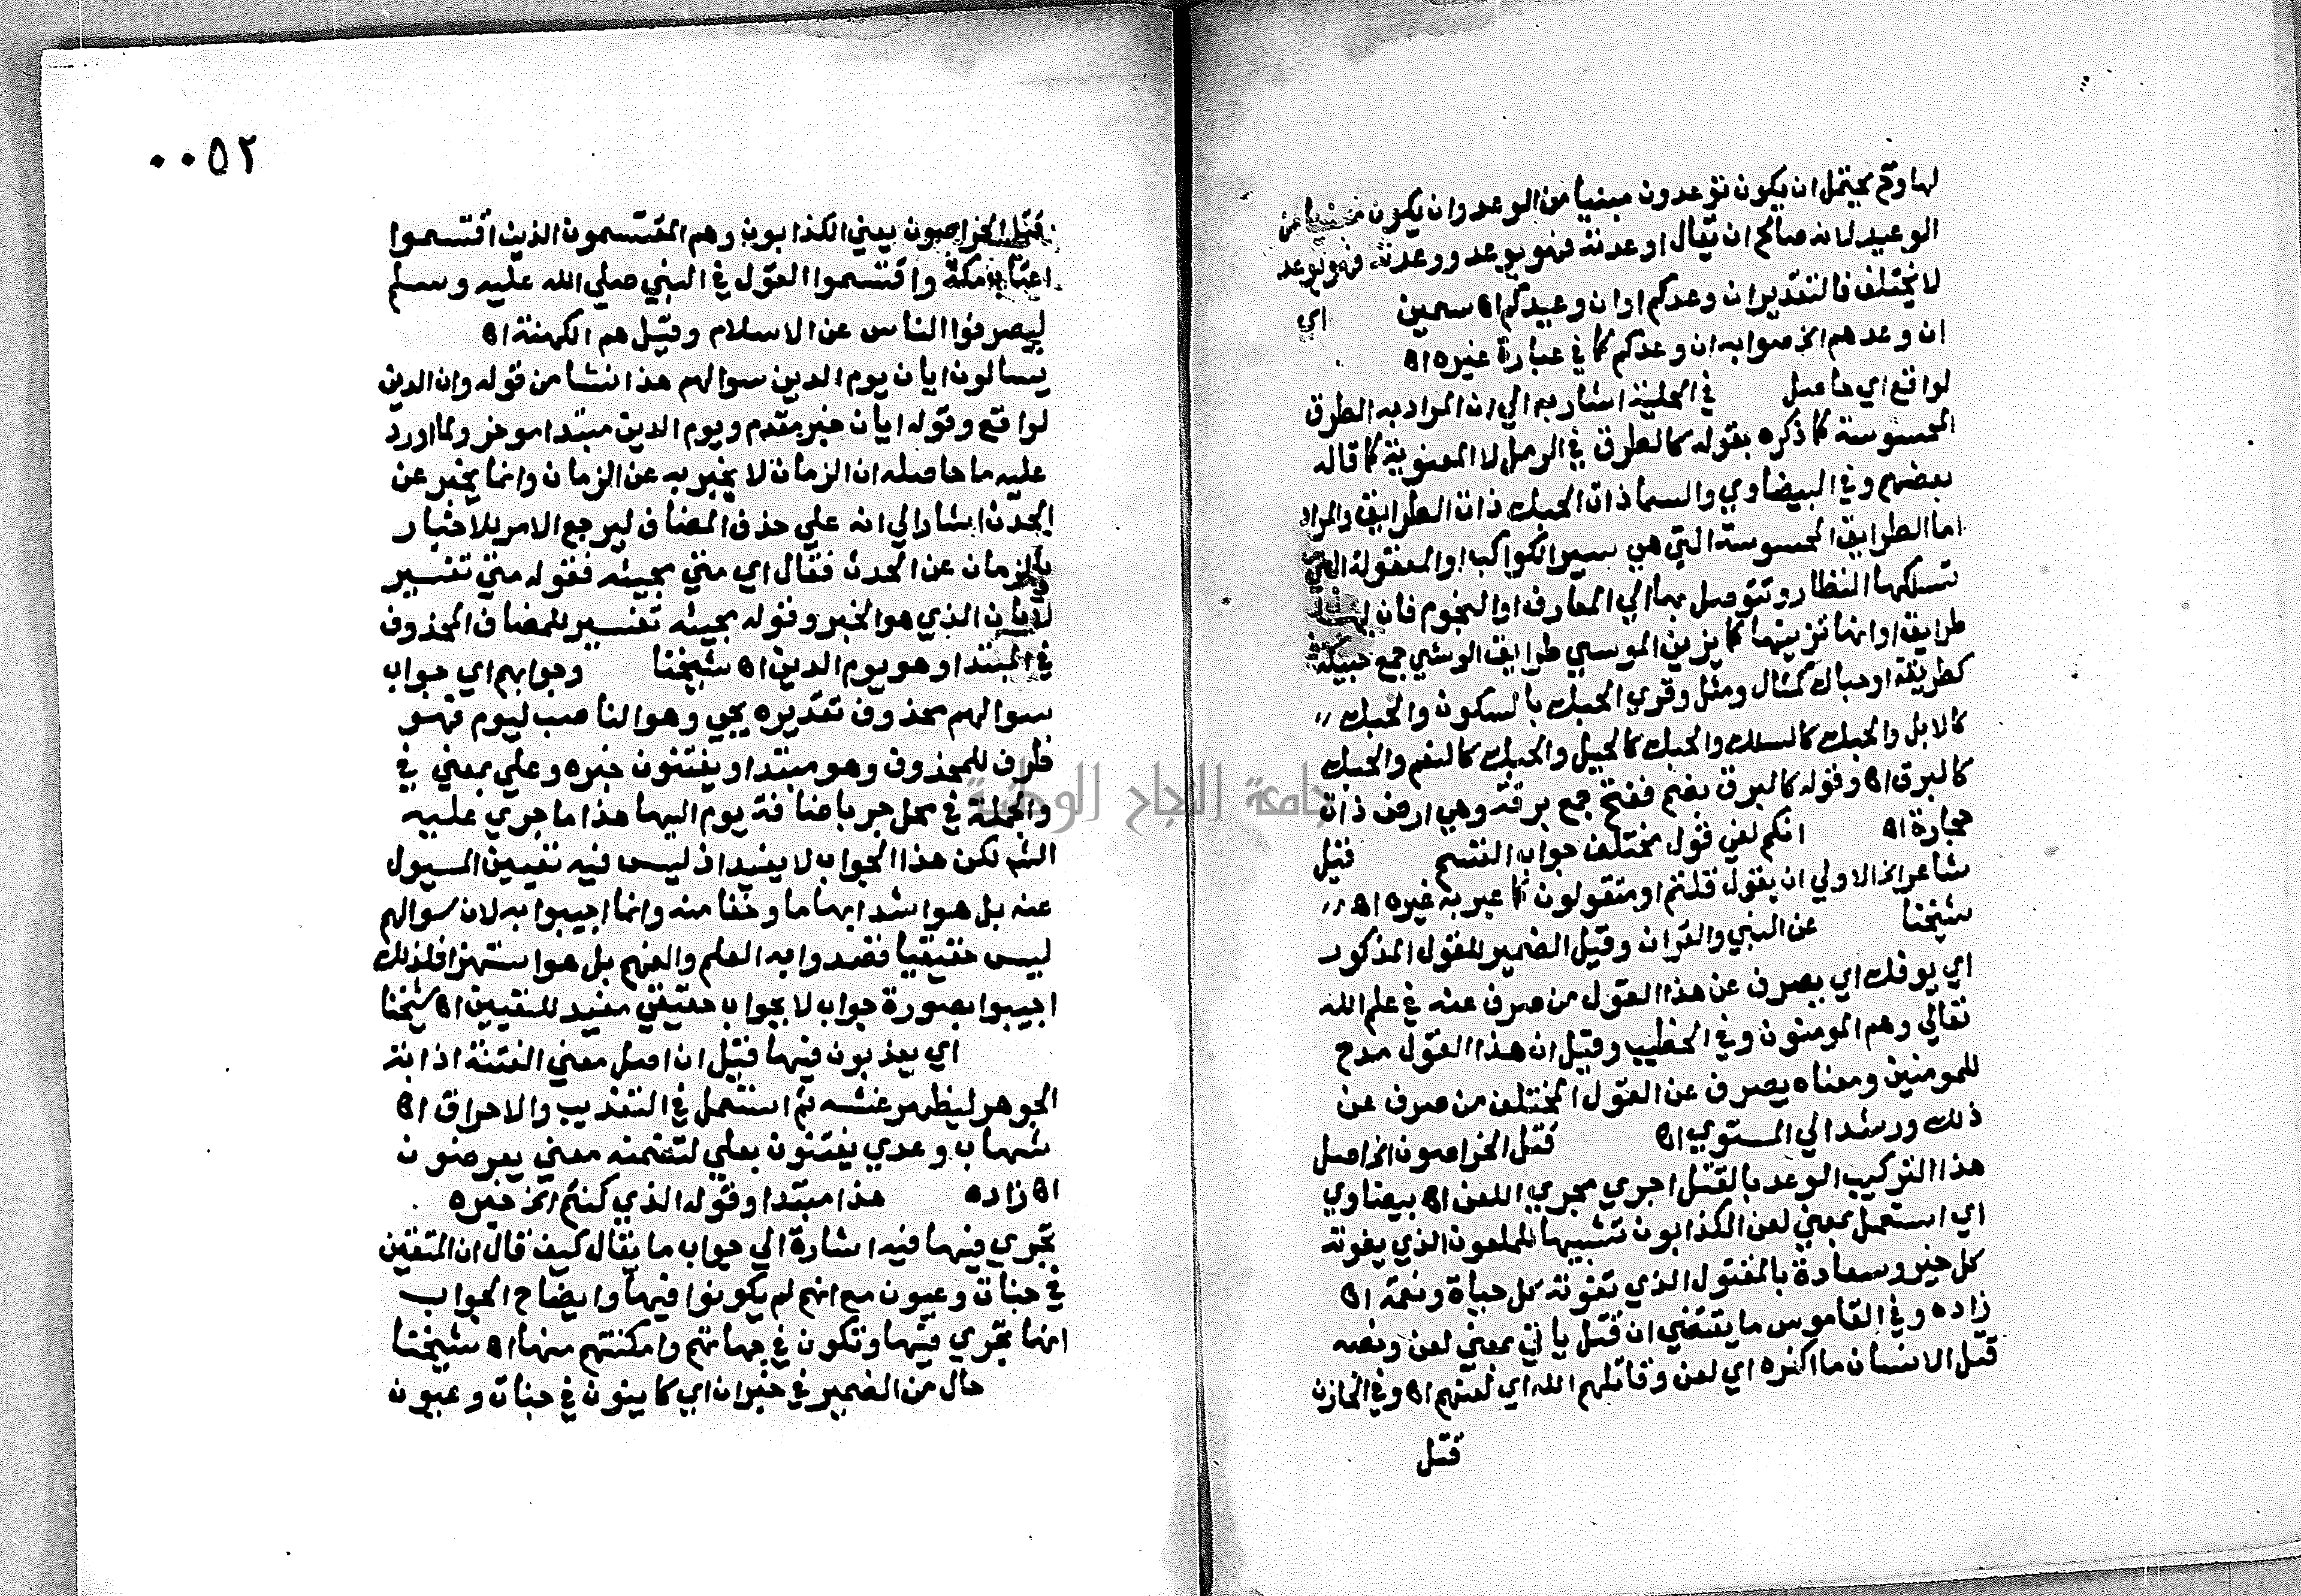 لها وح يحتمل ان يكون توعدون مبنيا من الوعد وان يكون مبنيا من
الوعيد لانه صالح ان يقال اوعدته فهو يوعد ووعدته فهو يوعد
لا يختلف فالتقدير ان وعدكم او ان وعيدكم اه سمين اي
ان وعدهم الخ صوابه ان وعدكم كما في عبارة غيره اه
لواقع اي حاصل في الخلقة اشار به الي ان المراد به الطرق
المحسوسة كما ذكره بقوله كالطرق في الرمل لا المعنوية كما قاله
بعضهم وفي البيضاوي والسما ذات الحبك ذات الطرايق والمراد
اما الطرايق المحسوسة التي هي سير الكواكب او المعقولة التي
تسلكها النظار وتتوصل بها الي المعارف او النجوم فان لها
طرايق او انها تزينها كما يزين الموسي طرايق الوشي جمع حبيكة
كطريقة او حباك كمثال ومثل وقري الحبك بالسكون والحبك
كالابل والحبك كالسلك والحبك كالجبل والحبك كالنعم والحبك
كالبرق اه وقوله كالبرق بضم ففتح جمع برقة وهي ارض ذات
حجارة اه انكم لفي قول مختلف جواب القسم قيل
شاعر الخ الاولي ان يقول قلتم او متقولون كما عبر به غيره اه
شيخنا عن النبي والقران وقيل الضمير للقول المذكور
اي يوفك اي يصرف عن هذا القول من صرف عنه في علم الله
تعالي وهم المومنون وفي الخطيب وقيل ان هذا القول مدح
للمومنين ومعناه يصرف عن القول المختلف من صرف عن
ذلك ورشد الي المستوي اه قتل الخراصون الخ اصل
هذا التركيب الوعد بالقتل اجري مجري اللعن اه بيضاوي
اي استعمل بمعني لعن الكذابون تشبيها للملعون الذي يفوته
كل خير وسعادة بالمقتول الذي تفوته كل حياة ونعمة اه
زاده وفي القاموس ما يقتضي ان قتل ياتي بمعني لعن ونصه
قتل الانسان ما اكفره اي لعن وقاتلهم الله اي لعنهم اه وفي الخازن
قتل
٠٠٥٢
قتل الخراصون يعني الكذابون وهم المقتسمون الذين اقتسموا
اعقاب مكة واقتسموا القول في النبي صلي الله عليه وسلم
ليصرفوا الناس عن الاسلام وقيل هم الكهنة اه
يسالون ايان يوم الدين سوالهم هذا نشا من قوله وان الدين
لواقع وقوله ايان خبر مقدم ويوم الدين مبتدا موخر ولما اورد
عليه ما حاصله ان الزمان لا يخبر به عن الزمان وانما يخبر عن
الحدث اشار الي انه علي حذف المضاف ليرجع الامر للاخبار
بالزمان عن الحدث فقال اي متي مجيئه فقوله متي تفسير
لايان الذي هو الخبر وقوله مجيئه تفسير للمضاف المحذوف
في المبتدا وهو يوم الدين اه شيخنا وجوابهم اي جواب
سوالهم محذوف تقديره يجي وهو الناصب ليوم فهو
ظرف للمحذوف وهو مبتدا ويفتنون خبره وعلي بمعني في
والجملة في محل جر باضافة يوم اليها هذا ما جري عليه
الشم لكن هذا الجواب لا يفيد اذ ليس فيه تعيين المسيول
عنه بل هو اشد ابهاما وخفا منه وانما اجيبوا به لان سوالهم
ليس حقيقيا فقصدوا به العلم والفهم بل هو استهزا فلذلك
اجيبوا بصورة جواب لا بجواب حقيقي مفيد للتعيين اه شيخنا
اي يعذبون فيها قيل ان اصل معني الفتنة اذابة
الجوهر ليظهر غشه ثم استعمل في التعذيب والاحراق اه
شهاب وعدي يفتنون بعلي لتضمنه معني يعرضون
اه زاده هذا مبتدا وقوله الذي كنتم الخ خبره
تجري فيها فيه اشارة الي جواب ما يقال كيف قال ان المتقين
في جنات وعيون مع انهم لم يكونوا فيها وايضاح الجواب
انها تجري فيها وتكون في جهاتهم وامكنتهم منها اه شيخنا
حال من الضمير في خبر ان اي كاينون في جنات وعيون